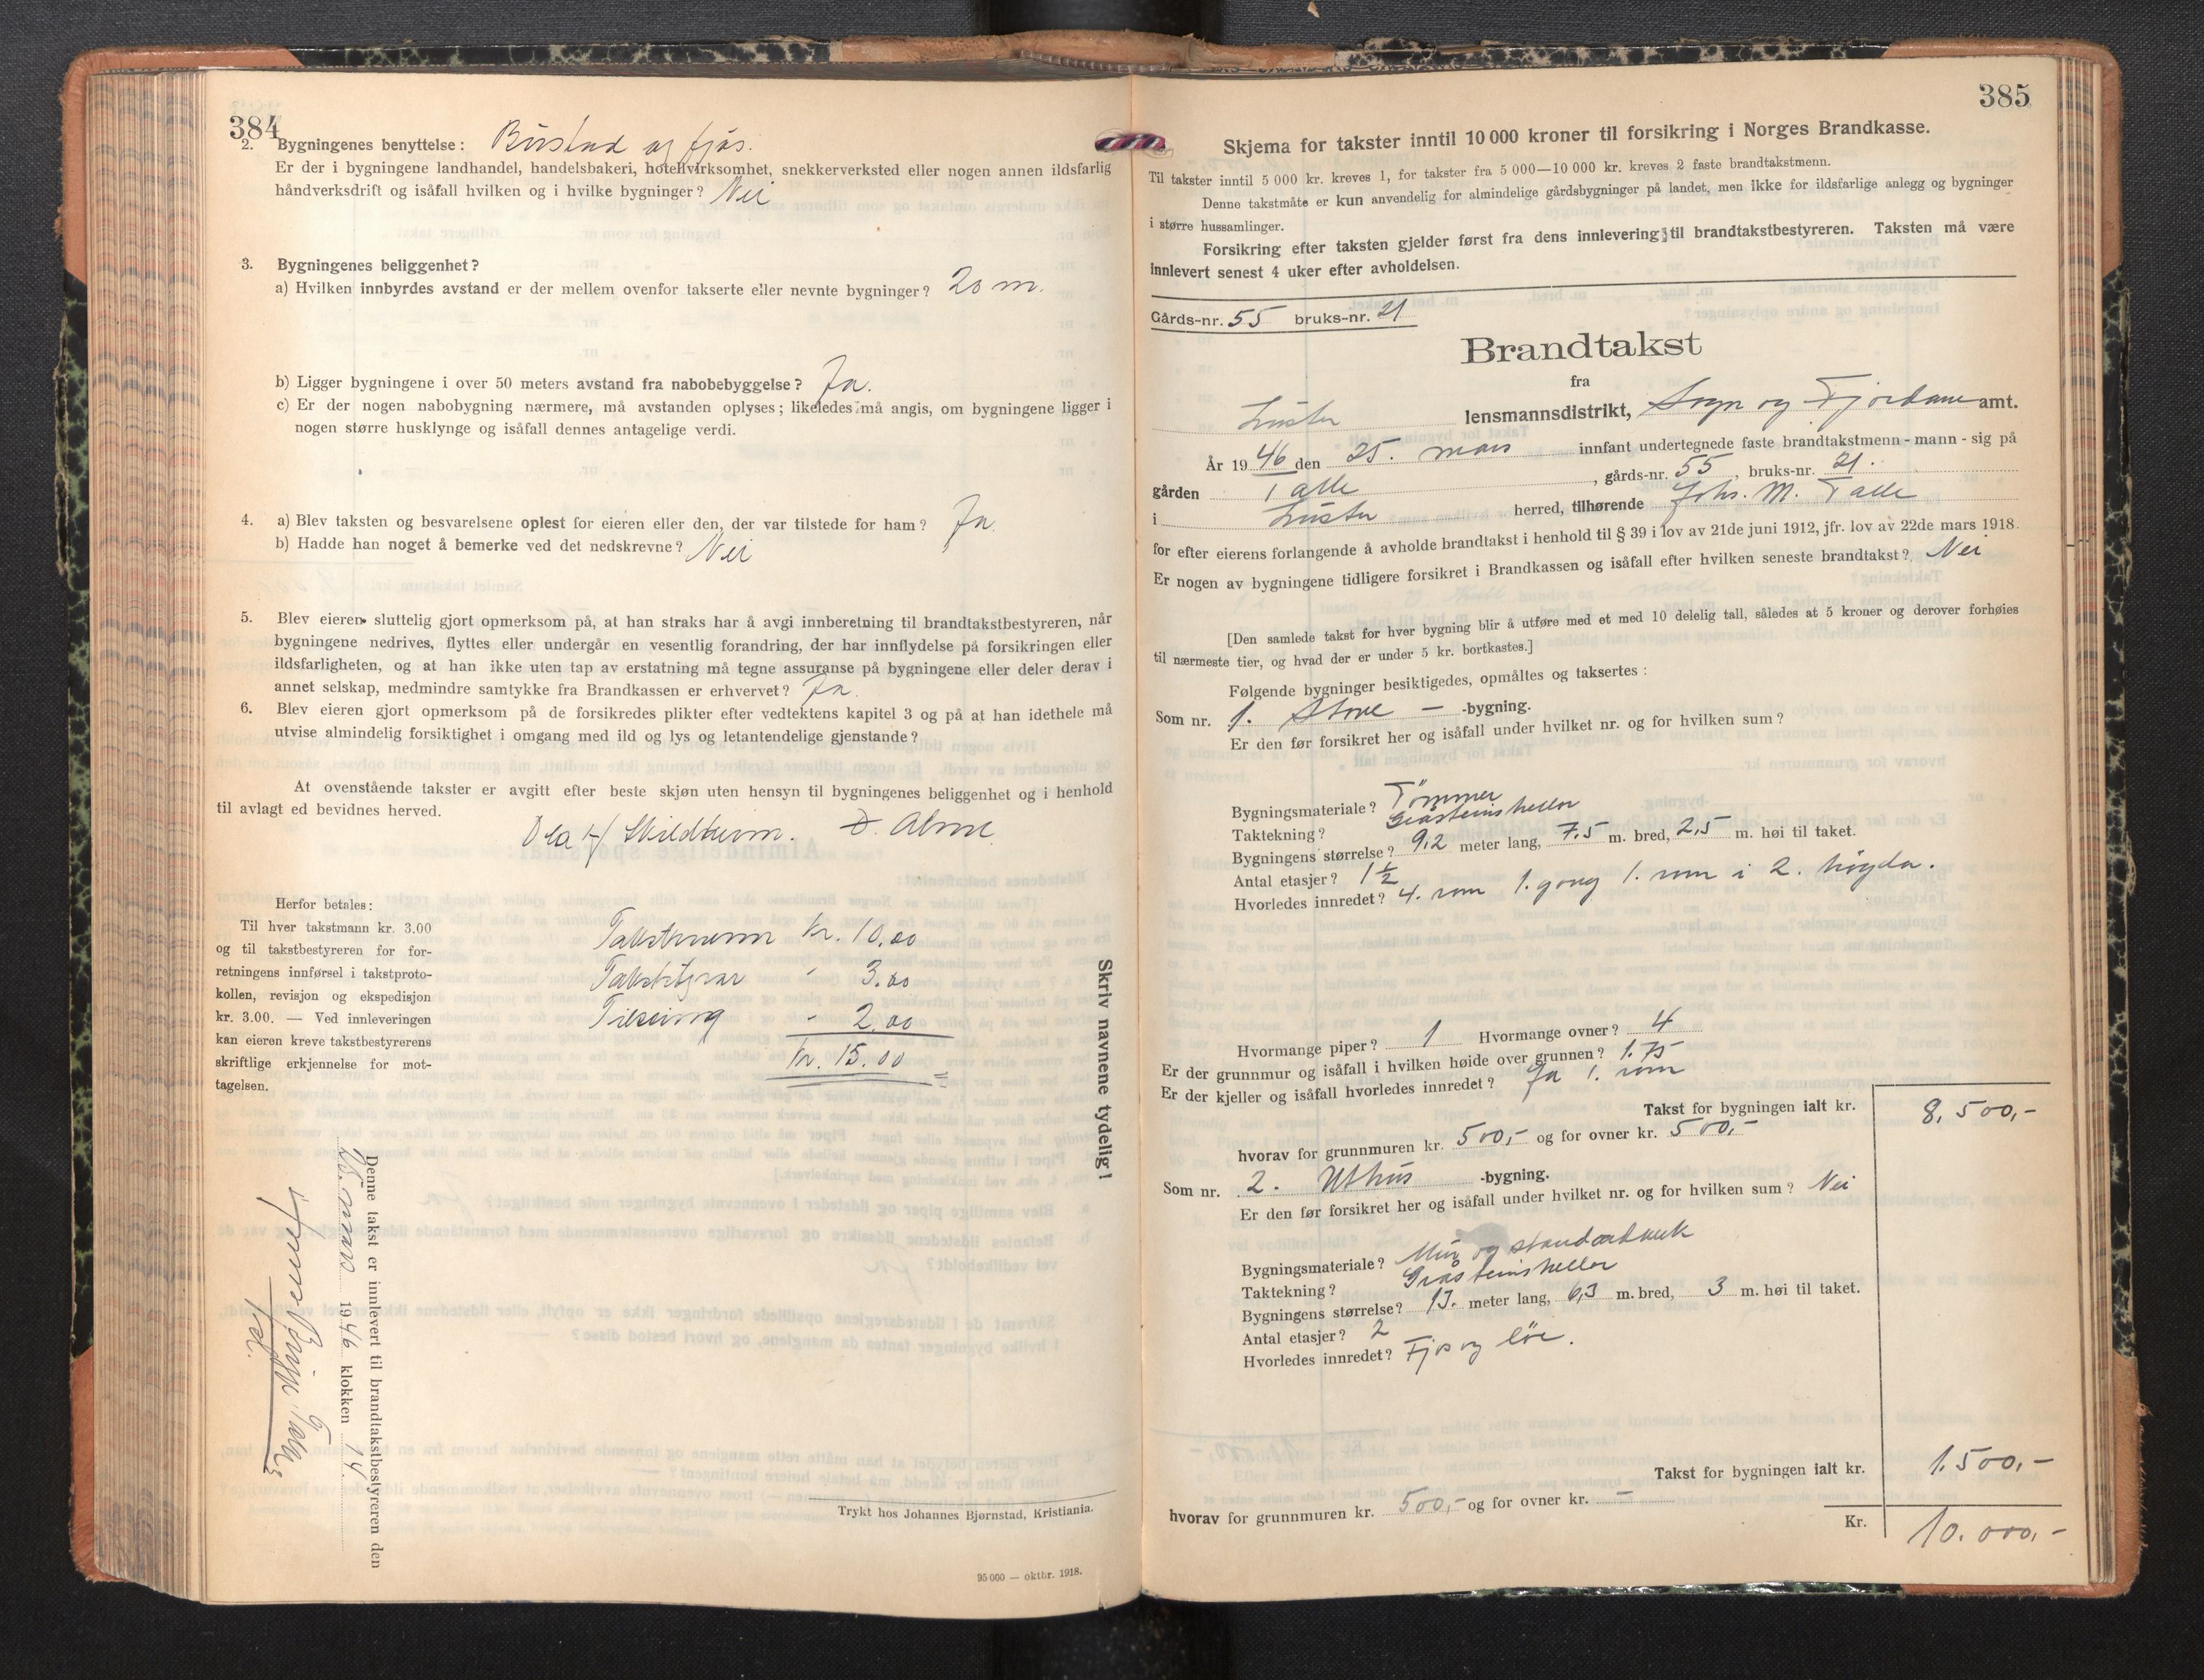 384
2. Bygningenes benyttelse: Bustad og fjøs.
Er der i bygningene landhandel, handelsbakeri, hotellvirksomhet, snekkerverksted eller nogen annen ildsfarlig
håndverksdrift og isåfall hvilken og i hvilke bygninger? Nei
3. Bygningenes beliggenhet?
a) Hvilken innbyrdes avstand er der mellem ovenfor takserte eller nevnte bygninger? 20 m.
b) Ligger bygningene i over 50 meters avstand fra nabobebyggelse? Ja.
c) Er der nogen nabobygning nærmere, må avstanden oplyses; likeledes må angis, om bygningene ligger i
nogen større husklynge og isåfall dennes antagelige verdi.
4. a) Blev taksten og besvarelsene oplest for eieren eller den, der var tilstede for ham? Ja
b) Hadde han noget å bemerke ved det nedskrevne? Nei
5. Blev eieren sluttelig gjort opmerksom på, at han straks har å avgi innberetning til brandtakstbestyreren, når
bygningene nedrives, flyttes eller undergår en vesentlig forandring, der har innflydelse på forsikringen eller
ildsfarligheten, og at han ikke uten tap av erstatning må tegne assuranse på bygningene eller deler derav i
annet selskap, medmindre samtykke fra Brandkassen er erhvervet? Ja.
6. Blev eieren gjort opmerksom på de forsikredes plikter efter vedtektens kapitel 3 og på at han idethele må
utvise almindelig forsiktighet i omgang med ild og lys og letantendelige gjenstande?
At ovenstående takster er avgitt efter beste skjøn uten hensyn til bygningenes beliggenhet og i henhold
til avlagt ed bevidnes herved.
Ola Skildheim. D. Alme
Herfor betales:
Til hver takstmann kr. 3.00
og til takstbestyreren for for-
retningens innførsel i takstproto-
kollen, revisjon og ekspedisjon
kr. 3.00. — Ved innleveringen
kan eieren kreve takstbestyrerens
skriftlige erkjennelse for mot-
tagelsen.
Takstmenn kr. 10.00
Takststyrar - 3.00
- 2.00
kr. 15.00
Skriv navnene tydelig!
Denne takst er innlevert til brandtakstbestyreren den
mars 1946 klokken 14.
Trykt hos Johannes Bjørnstad, Kristiania.
95 000 — oktbr. 1918.
385
Skjema for takster inntil 10 000 kroner til forsikring i Norges Brandkasse.
Til takster inntil 5 000 kr. kreves 1, for takster fra 5 000—10 000 kr. kreves 2 faste brandtakstmenn.
Denne takstmåte er kun anvendelig for almindelige gårdsbygninger på landet, men ikke for ildsfarlige anlegg og bygninger
i større hussamlinger.
Forsikring efter taksten gjelder først fra dens innlevering til brandtakstbestyreren. Taksten må være
innlevert senest 4 uker efter avholdelsen.
Gårds-nr. 55 bruks-nr. 21
Brandtakst
fra
Luster lensmannsdistrikt, Sogn og Fjordane amt.
År 1946 den 25. mars innfant undertegnede faste brandtakstmenn - mann - sig på
gården Talle, gårds-nr. 55, bruks-nr. 21.
i Luster herred, tilhørende Johs. M. Talle
for efter eierens forlangende å avholde brandtakst i henhold til § 39 i lov av 21de juni 1912, jfr. lov av 22de mars 1918.
Er nogen av bygningene tidligere forsikret i Brandkassen og isåfall efter hvilken seneste brandtakst? Nei
[Den samlede takst for hver bygning blir å utføre med et med 10 delelig tall, således at 5 kroner og derover forhøies
til nærmeste tier, og hvad der er under 5 kr. bortkastes.]
Følgende bygninger besiktigedes, opmåltes og taksertes:
Som nr. 1. Stove -bygning.
Er den før forsikret her og isåfall under hvilket nr. og for hvilken sum?
Bygningsmateriale? Tømmer
Taktekning? Gråsteinsheller
Bygningens størrelse? 9,2 meter lang, 7.5 m. bred, 2,5 m. høi til taket.
Antal etasjer? 1½
Hvorledes innredet? 4. rom 1. gong 1. rom i 2. høgda.
Hvormange piper? 1 Hvormange ovner? 4
Er der grunnmur og isåfall i hvilken høide over grunnen? 1.75
Er der kjeller og isåfall hvorledes innredet? Ja 1. rom
Takst for bygningen ialt kr. 8.500,-
hvorav for grunnmuren kr. 500,- og for ovner kr. 500,-
Som nr. 2. Uthus -bygning.
Er den før forsikret her og isåfall under hvilket nr. og for hvilken sum? Nei
Bygningsmateriale? Mur og standarbank
Taktekning? Gråsteinsheller
Bygningens størrelse? 13. meter lang, 6,3 m. bred, 3 m. høi til taket.
Antal etasjer? 2
Hvorledes innredet? Fjos og løe.
Takst for bygningen ialt kr. 1.500,-
hvorav for grunnmuren kr. 500,- og for ovner kr. -
Kr. 10.000,-